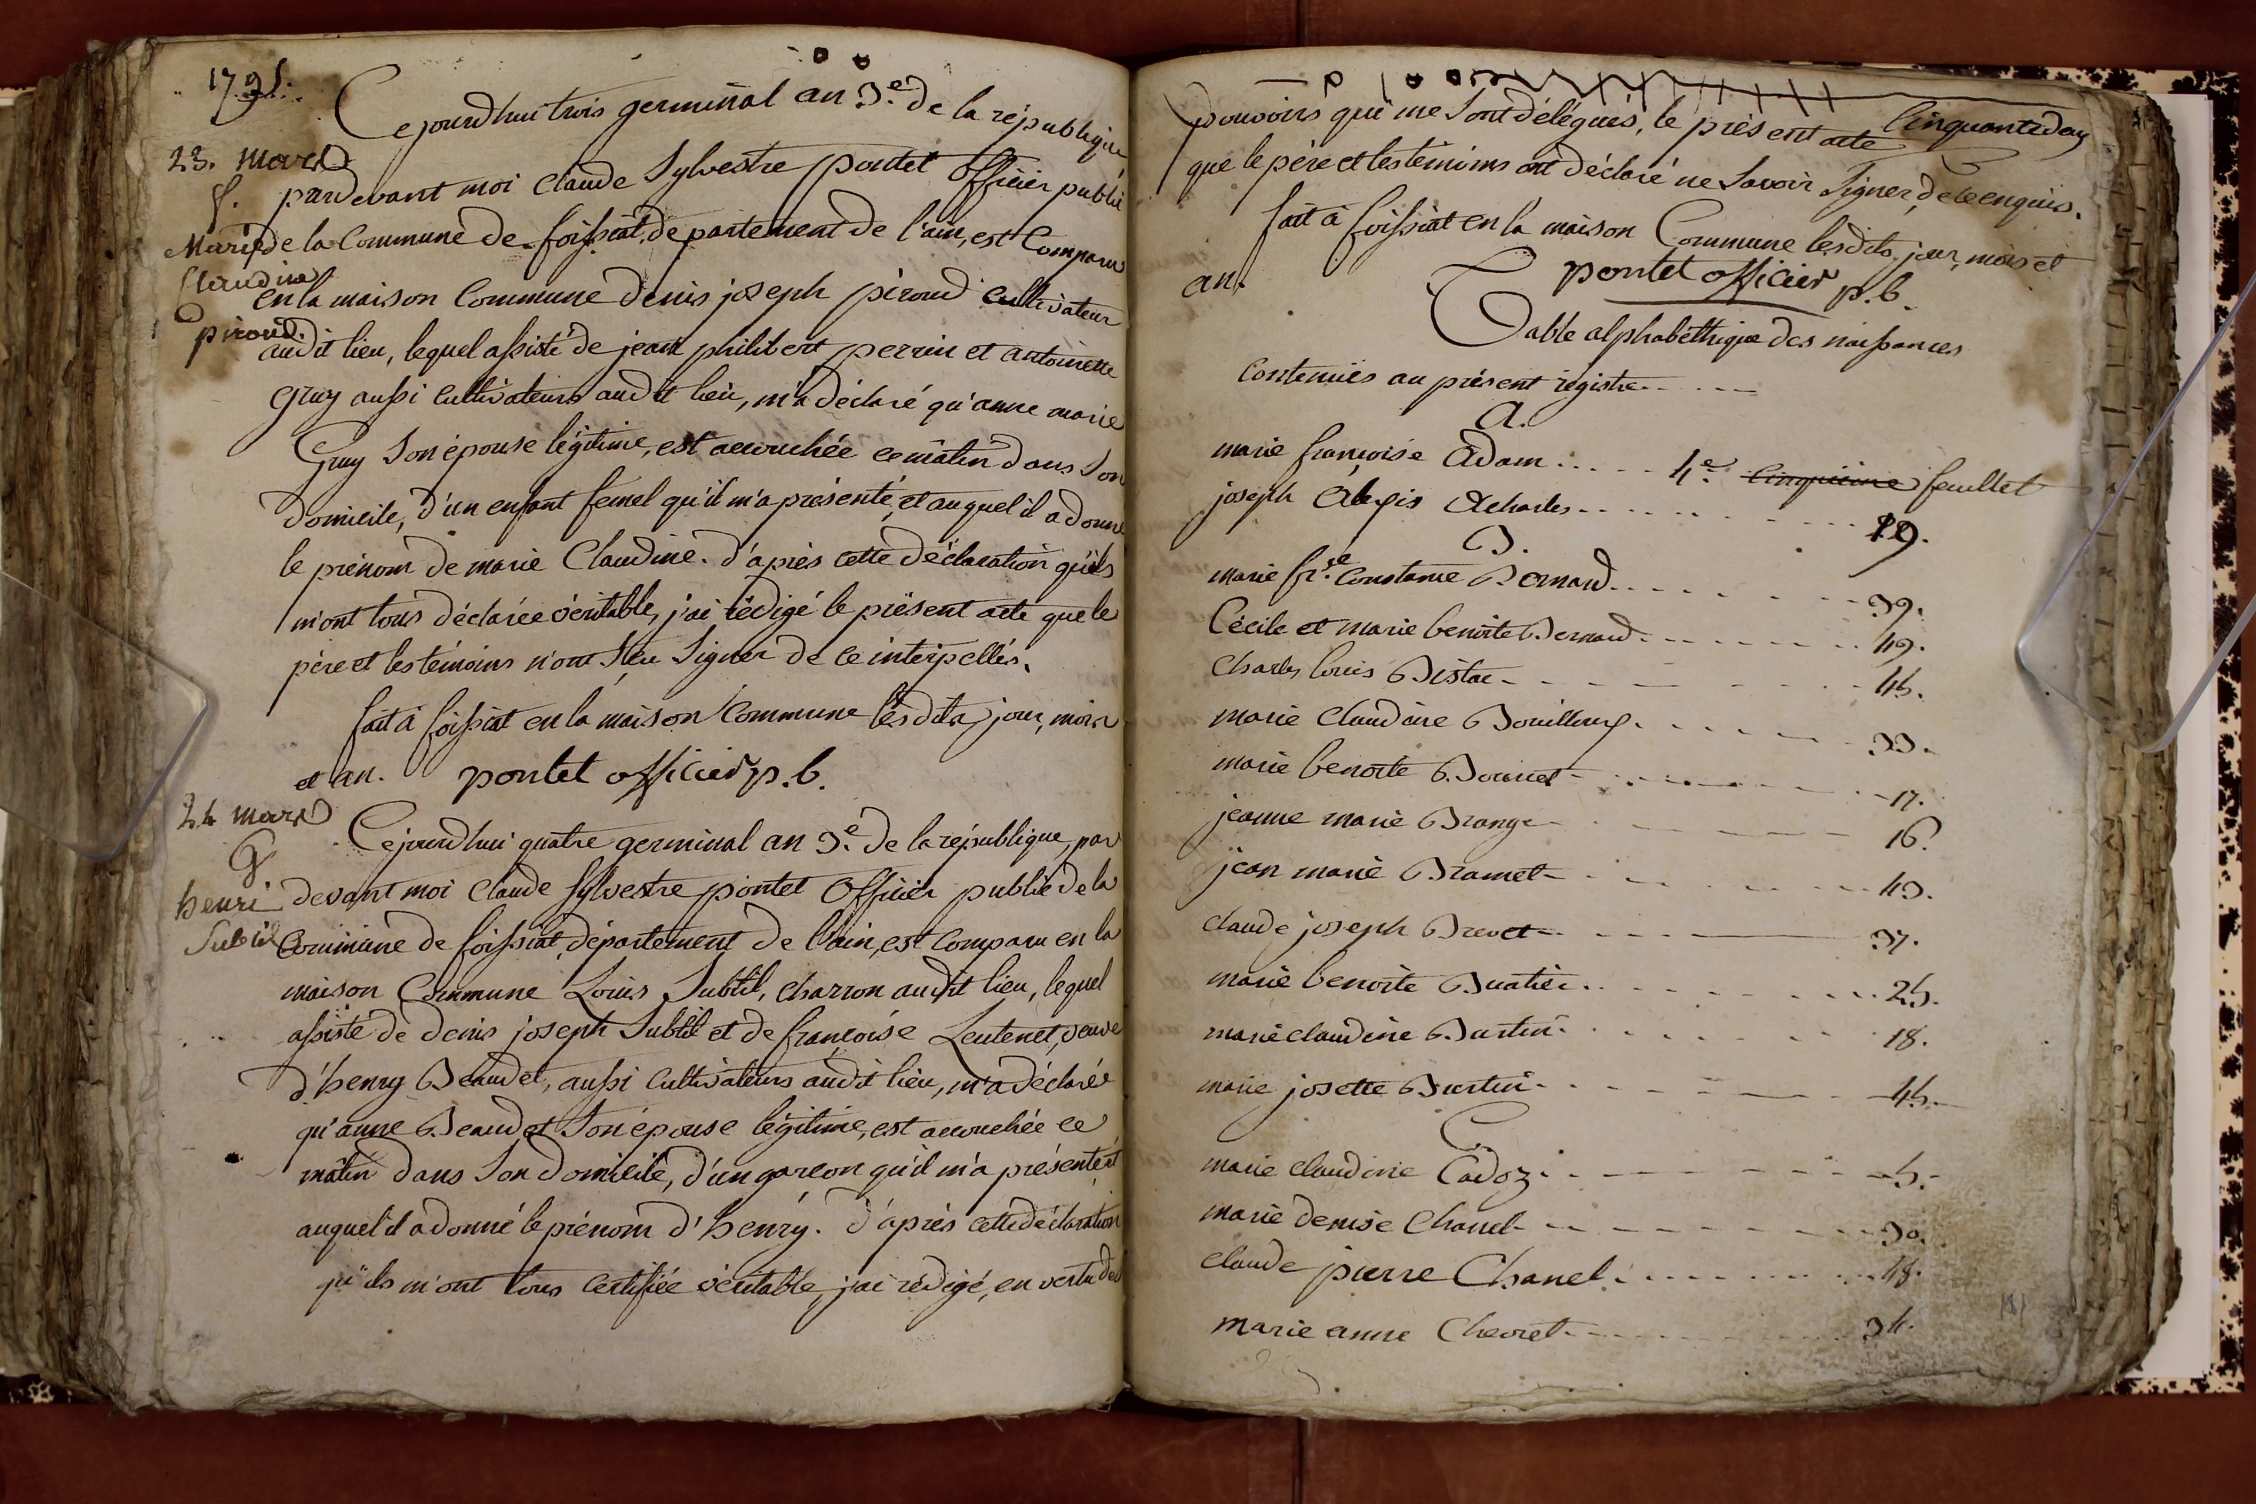 1795.
Cejourdhui trois germinal an 3.e de la république
23. mars
pardevant moi Claude Sylvestre pontet officier public
f.
Marie de la Commune de foissiat, departement de l'ain, est Comparu
Claudine
en la maison Commune denis joseph piroud cultivateur
piroud.
audit lieu, lequel assisté de jean philibert perrin et antoinette
Guy aussi Cultivateurs audit lieu, m'a déclaré qu'anne marie
Guy Son épouse légitime, est accouchée ce mâtin dans Son
domicile, d'un enfant femel qu'il m'a présenté, et auquel il a donné
le prénom de marie Claudine. d'après cette déclaration qu'ils
m'ont tous déclarée véritable, j'ai rédigé le présent acte que le
père et les témoins n'ont Sçu Signer de ce interpellés.
fait à foissiat en la maison Commune lesdits jour, mois
et an. pontet officier p.b.
24 mars
Cejourdhui quatre germinal an 3.e de la république, par
G
henri devant moi Claude Sylvestre pontet Officier public de la
Subtil Commune de foissiat, département de l'ain, est Comparu en la
maison Commune Louis Subtil, charron audit lieu, lequel
assisté de denis joseph Subtil et de françoise Leutenet, veuve
d'henry Beaudet, aussi Cultivateurs audit lieu, m'a déclaré
qu'anne Beaudet Son épouse légitime, est accouchée ce
mâtin dans Son domicile, d'un garcon qu'il m'a présenté et
auquel il a donné le prénom d'henry. d'après cette déclaration
qu'ils m'ont tous certifiée véritable, j'ai rédigé, en vertu des
Cinquantedeux
pouvoirs qui me Sont délégués, le présent acte
que le père et les témoins ont déclaré ne Savoir Signer, de ce enquis.
fait à foissiat en la maison Commune lesdits jour, mois et
an. pontet officier p.b.
Table alphabéthique des naissances
Contenuës au présent régistre
A.
marie françoise Adam 4.e cinquième feuillet
joseph Alexis Acharles 19.
B.
marie fr.se Constance Bernard 39.
Cécile et marie benoite Bernard 49.
Charles louis Bistac 45.
marie Claudine Bouilloux 33.
marie benoite Bournet 17.
jeanne marie Brange 16.
jean marie Bramet 43.
claude joseph Brevet 37.
marie benoite Buatier 25.
marie claudine Burtin 18.
marie josette Burtin 45.
C.
marie claudine Cadoz 5.
marie denise Chanel 30.
claude pierre Chanel 48.
marie anne Chevret 34.